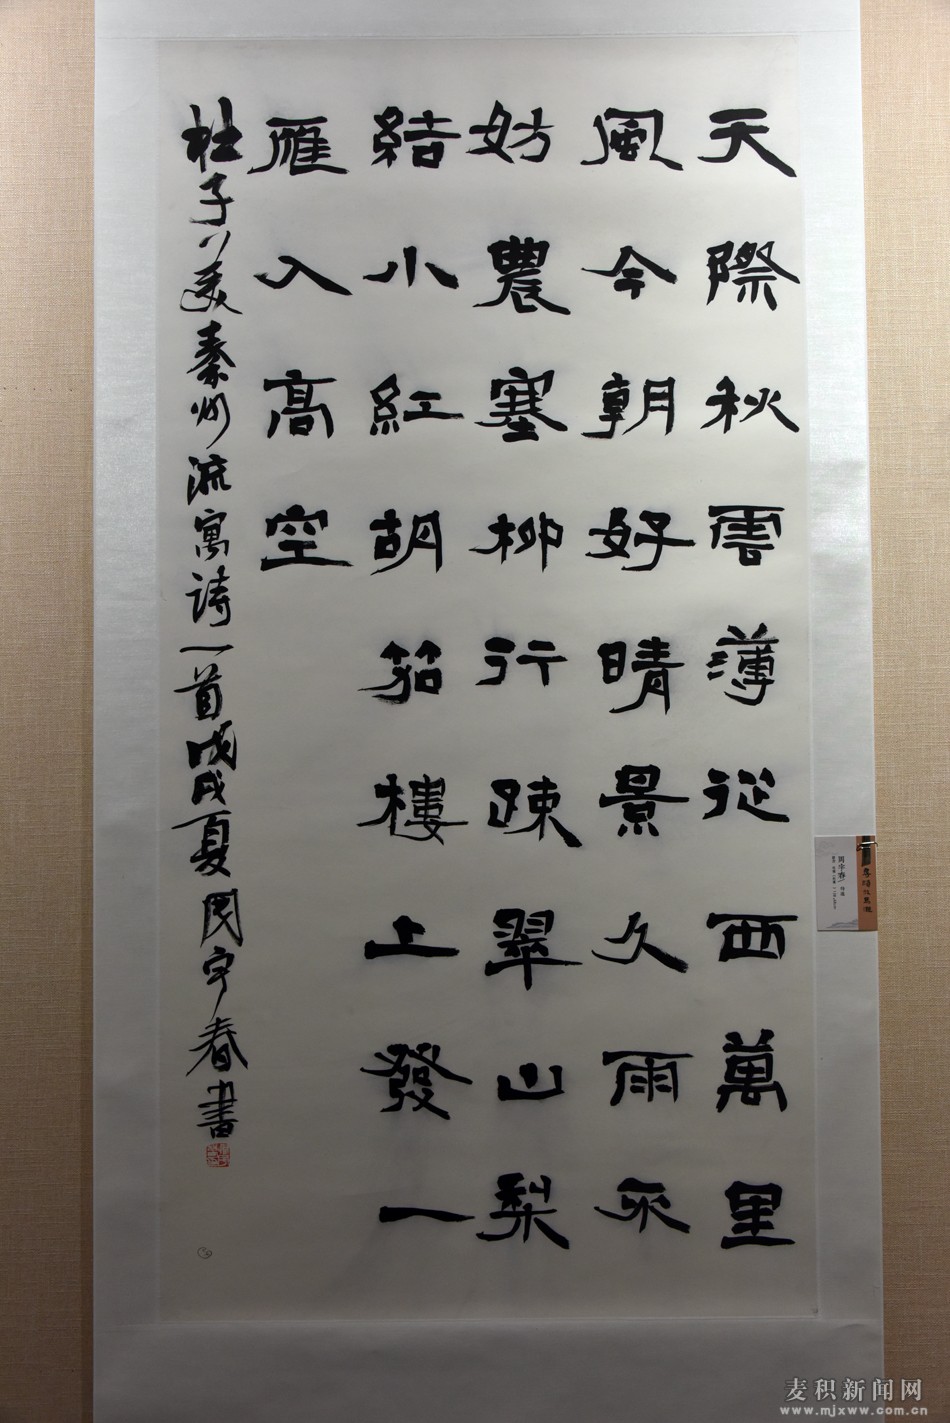 天際秋雲薄從西萬里
風今朝好晴景久雨不
妨農塞柳行疎翠山梨
結小紅胡笳樓上發一
雁入高空
杜子美秦州流寓詩一首戊戌夏周宇春書
麦积新闻网
www.mjxww.com.cn